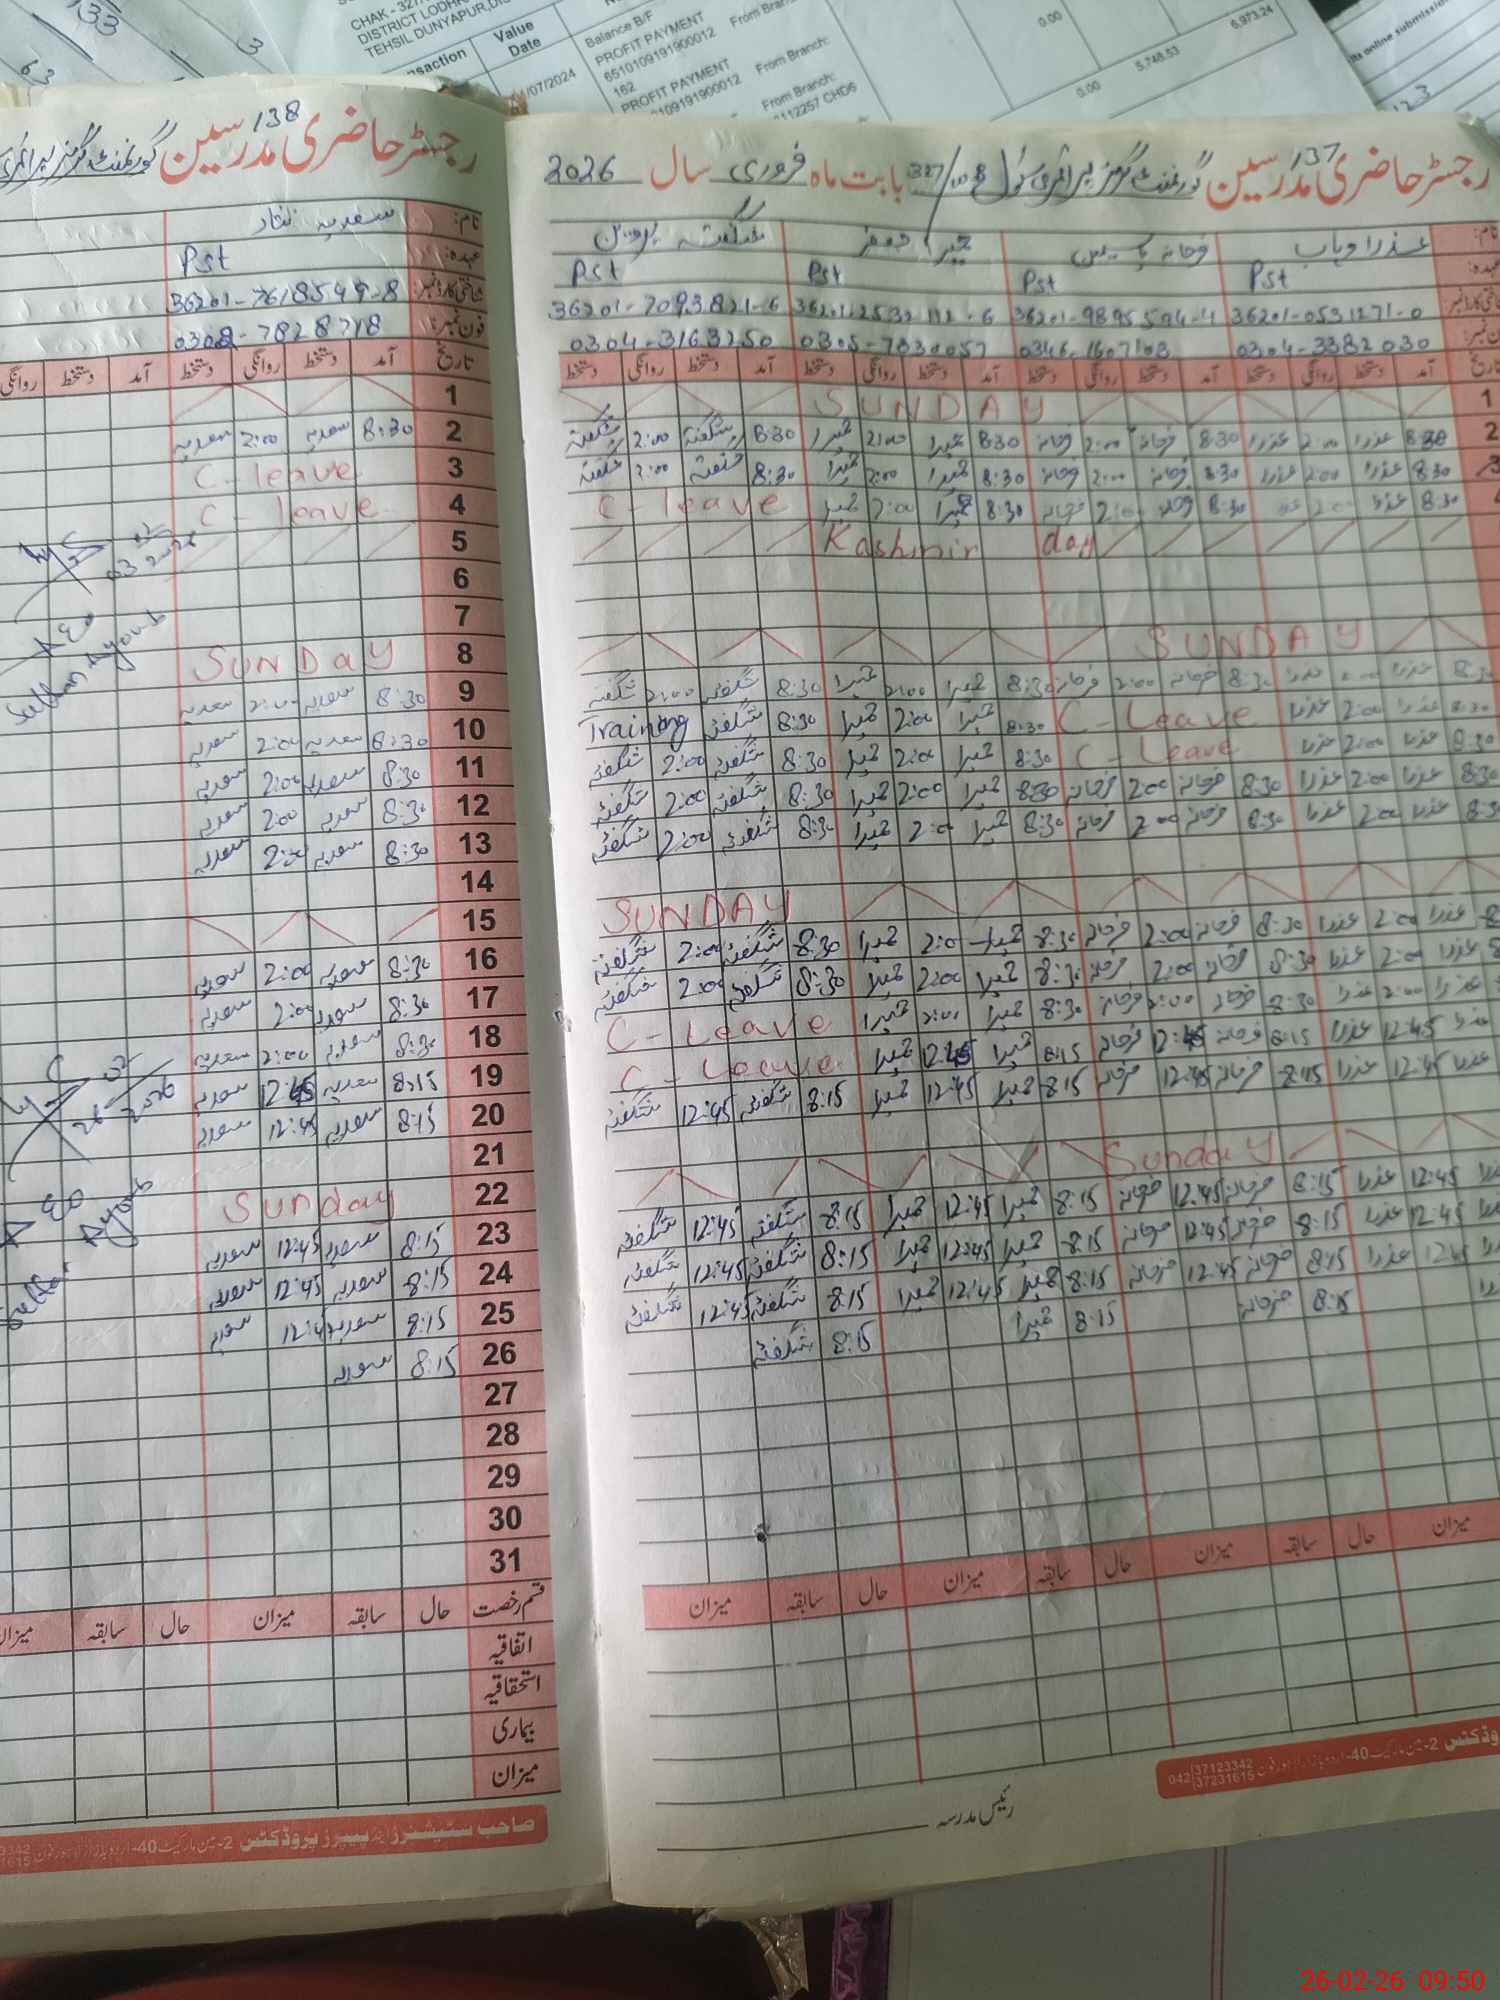 CHAK - 327/
DISTRICT LODHR
TEHSIL DUNYAPUR,DIS
Value Date
Balance B/F
PROFIT PAYMENT From Branch:
65101091919000012
162
PROFIT PAYMENT From Branch:
0.00
5,748.53
6,973.24
0.00
رجسٹر حاضری مدرسین 138
نام: سعدیہ
عہدہ: Pst
شناختی کارڈ نمبر: 36201-7618549-8
فون نمبر: 0308-7828718
تاریخ آمد دستخط روانگی دستخط آمد دستخط روانگی
1
2 8:30 سعدیہ 2:00 سعدیہ
3 C-leave
4 C-leave
5
6
7
8 SUNDAY
9 8:30 سعدیہ 2:00 سعدیہ
10 8:30 سعدیہ 2:00 سعدیہ
11 8:30 سعدیہ 2:00 سعدیہ
12 8:30 سعدیہ 2:00 سعدیہ
13 8:30 سعدیہ 2:00 سعدیہ
14
15
16 8:30 سعدیہ 2:00 سعدیہ
17 8:30 سعدیہ 2:00 سعدیہ
18 8:30 سعدیہ 2:00 سعدیہ
19 8:15 سعدیہ 12:45 سعدیہ
20 8:15 سعدیہ 12:45 سعدیہ
21
22 Sunday
23 8:15 سعدیہ 12:45 سعدیہ
24 8:15 سعدیہ 12:45 سعدیہ
25 8:15 سعدیہ 12:45 سعدیہ
26 8:15 سعدیہ
27
28
29
30
31
قسم رخصت حال سابقہ میزان حال سابقہ میزان
اتفاقیہ
استحقاقیہ
بیماری
میزان
صاحب سٹیشنرز اینڈ پیپرز پروڈکٹس
AEO
Ayoub
رجسٹر حاضری مدرسین 137 گورنمنٹ گرلز پرائمری سکول بابت ماہ فروری سال 2026
عذرا وہاب فرحانہ یاسمین حمیرا جعفر شگفتہ پروین
Pst Pst Pst Pst
36201-0531271-0 36201-9895594-4 36201-7093821-6
0304-3382030 0346-1607103 0305-7830057 0304-3163250
آمد دستخط روانگی دستخط آمد دستخط روانگی دستخط آمد دستخط روانگی دستخط آمد دستخط روانگی دستخط
1 SUNDAY
2 8:30 عذرا 2:00 عذرا 8:30 فرحانہ 2:00 فرحانہ 8:30 حمیرا 2:00 حمیرا 8:30 شگفتہ 2:00 شگفتہ
3 8:30 عذرا 2:00 عذرا 8:30 فرحانہ 2:00 فرحانہ 8:30 حمیرا 2:00 حمیرا 8:30 شگفتہ 2:00 شگفتہ
4 8:30 عذرا 2:00 عذرا 8:30 فرحانہ 2:00 فرحانہ 8:30 حمیرا 2:00 حمیرا C-leave
Kashmir day
SUNDAY
8:30 عذرا 2:00 عذرا 8:30 فرحانہ 2:00 فرحانہ 8:30 حمیرا 2:00 حمیرا 8:30 شگفتہ 2:00 شگفتہ
8:30 عذرا 2:00 عذرا C-Leave 8:30 حمیرا 2:00 حمیرا 8:30 شگفتہ Training
8:30 عذرا 2:00 عذرا C-Leave 8:30 حمیرا 2:00 حمیرا 8:30 شگفتہ 2:00 شگفتہ
8:30 عذرا 2:00 عذرا 8:30 فرحانہ 2:00 فرحانہ 8:30 حمیرا 2:00 حمیرا 8:30 شگفتہ 2:00 شگفتہ
8:30 عذرا 2:00 عذرا 8:30 فرحانہ 2:00 فرحانہ 8:30 حمیرا 2:00 حمیرا 8:30 شگفتہ 2:00 شگفتہ
SUNDAY
عذرا 2:00 عذرا 8:30 فرحانہ 2:00 فرحانہ 8:30 حمیرا 2:00 حمیرا 8:30 شگفتہ 2:00 شگفتہ
عذرا 2:00 عذرا 8:30 فرحانہ 2:00 فرحانہ 8:30 حمیرا 2:00 حمیرا 8:30 شگفتہ 2:00 شگفتہ
عذرا 2:00 عذرا 8:30 فرحانہ 2:00 فرحانہ 8:30 حمیرا 2:00 حمیرا C-Leave
عذرا 12:45 عذرا 8:15 فرحانہ 12:45 فرحانہ 8:15 حمیرا 12:45 حمیرا C-Leave
عذرا 12:45 عذرا 8:15 فرحانہ 12:45 فرحانہ 8:15 حمیرا 12:45 حمیرا 8:15 شگفتہ 12:45 شگفتہ
Sunday
12:45 عذرا 8:15 فرحانہ 12:45 فرحانہ 8:15 حمیرا 12:45 حمیرا 8:15 شگفتہ 12:45 شگفتہ
12:45 عذرا 8:15 فرحانہ 12:45 فرحانہ 8:15 حمیرا 12:45 حمیرا 8:15 شگفتہ 12:45 شگفتہ
12:45 عذرا 8:15 فرحانہ 12:45 فرحانہ 8:15 حمیرا 12:45 حمیرا 8:15 شگفتہ 12:45 شگفتہ
8:15 فرحانہ 8:15 حمیرا 8:15 شگفتہ
میزان حال سابقہ میزان حال سابقہ میزان حال سابقہ میزان
042 37123342
37231615
رئیس مدرسہ
26-02-26 09:50